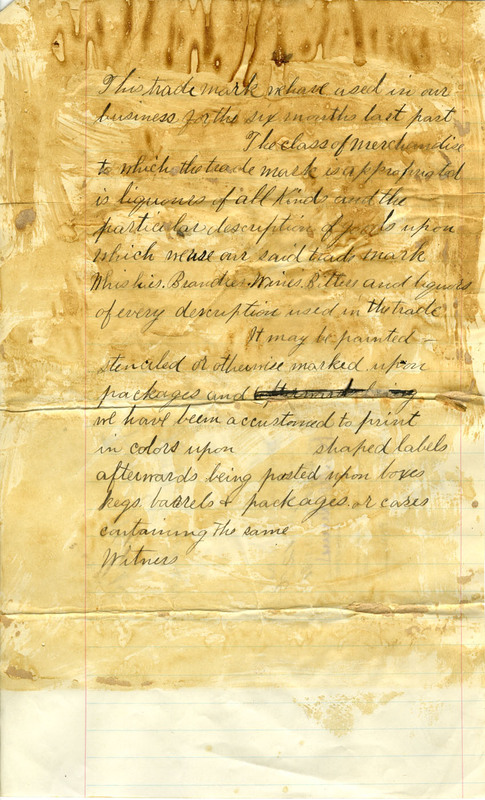 This trade mark we have used in our
business for the six months last past
The class of merchandise
to which the trade mark is appropriated
is liquours of all kinds and the
particular description of goods upon
which we use our said trade mark
Whiskies. Brandies. Wines. Bitters and liquors
of every description used in the trade
It may be painted -
stenciled or otherwise marked upon
packages and
we have been accustomed to print
in colors upon shaped labels
afterwards being pasted upon boxes
kegs. barrels & packages. or cases
containing the same
Witness